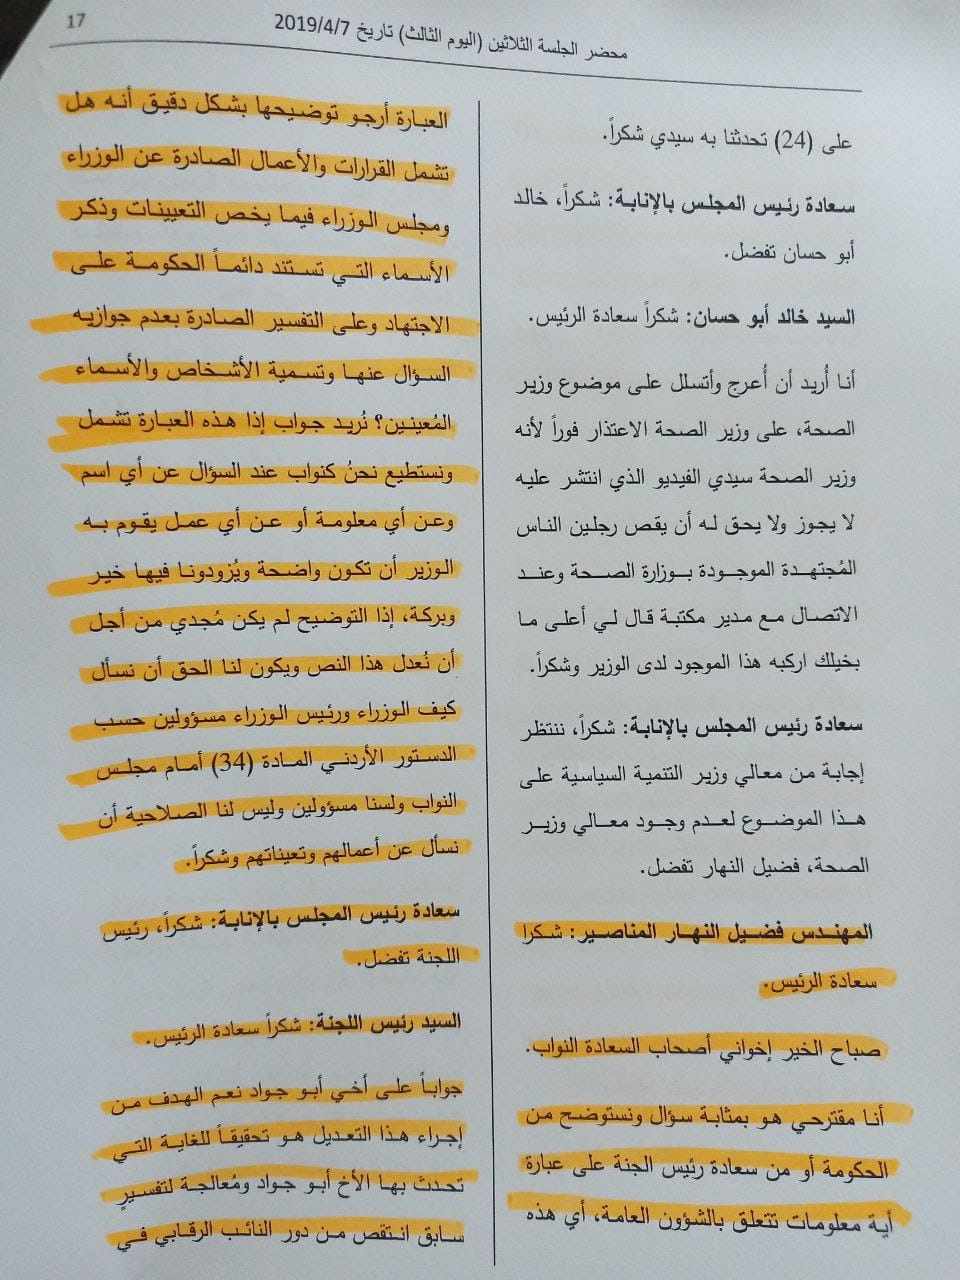 محضر الجلسة الثلاثين (اليوم الثالث) تاريخ 2019/4/7
17
على (24) تحدثنا به سيدي شكراً.
سعادة رئيس المجلس بالإنابة: شكراً، خالد
أبو حسان تفضل.
السيد خالد أبو حسان: شكراً سعادة الرئيس.
أنا أُريد أن أُعرج وأتسلل على موضوع وزير
الصحة، على وزير الصحة الاعتذار فوراً لأنه
وزير الصحة سيدي الفيديو الذي انتشر عليه
لا يجوز ولا يحق له أن يقص رجلين الناس
المُجتهدة الموجودة بوزارة الصحة وعند
الاتصال مع مدير مكتبة قال لي أعلى ما
بخيلك اركبه هذا الموجود لدى الوزير وشكراً.
سعادة رئيس المجلس بالإنابة: شكراً، ننتظر
إجابة من معالي وزير التنمية السياسية على
هذا الموضوع لعدم وجود معالي وزير
الصحة، فضيل النهار تفضل.
المهندس فضيل النهار المناصير: شكرا
سعادة الرئيس.
صباح الخير إخواني أصحاب السعادة النواب.
أنا مقترحي هو بمثابة سؤال ونستوضح من
الحكومة أو من سعادة رئيس الجنة على عبارة
أية معلومات تتعلق بالشؤون العامة، أي هذه
العبارة أرجو توضيحها بشكل دقيق أنه هل
تشمل القرارات والأعمال الصادرة عن الوزراء
ومجلس الوزراء فيما يخص التعيينات وذكر
الأسماء التي تستند دائماً الحكومة على
الاجتهاد وعلى التفسير الصادرة بعدم جوازيه
السؤال عنها وتسمية الأشخاص والأسماء
المُعينين؟ نُريد جواب إذا هذه العبارة تشمل
ونستطيع نحنُ كنواب عند السؤال عن أي اسم
وعن أي معلومة أو عن أي عمل يقوم به
الوزير أن تكون واضحة ويُزودونا فيها خير
وبركة، إذا التوضيح لم يكن مُجدي من أجل
أن نُعدل هذا النص ويكون لنا الحق أن نسأل
كيف الوزراء ورئيس الوزراء مسؤولين حسب
الدستور الأردني المادة (34) أمام مجلس
النواب ولسنا مسؤولين وليس لنا الصلاحية أن
نسأل عن أعمالهم وتعيناتهم وشكراً.
سعادة رئيس المجلس بالإنابة: شكراً، رئيس
اللجنة تفضل.
السيد رئيس اللجنة: شكراً سعادة الرئيس.
جواباً على أخي أبو جواد نعم الهدف من
إجراء هذا التعديل هو تحقيقاً للغاية التي
تحدث بها الأخ أبو جواد ومُعالجة لتفسيرٍ
سابق انتقص من دور النائب الرقابي في